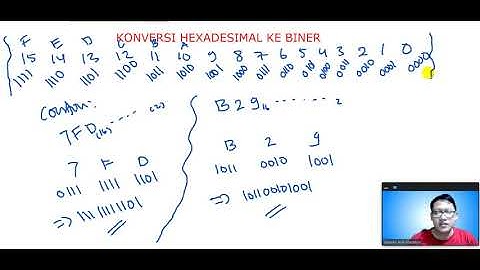 KONVERSI HEXADESIMAL KE BINER
F E D C B A
15 14 13 12 11 10 9 8 7 6 5 4 3 2 1 0
1111 1110 1101 1100 1011 1010 1001 1000 0111 0110 0101 0100 0011 0010 0001 0000
Contoh:
7FD(16)......(2)
7 F D
0111 1111 1101
=> 11111111101
B29 16 ........ 2
B 2 9
1011 0010 1001
=> 101100101001